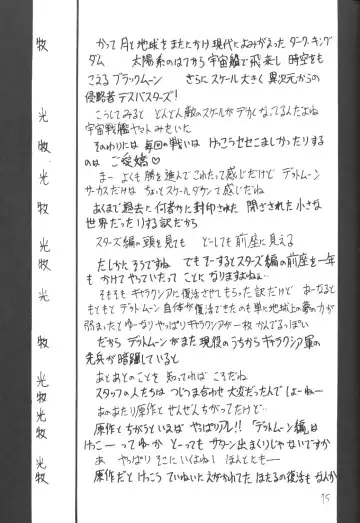 牧 かつて月と地球をまたにかけ現代によみがえったダーク・キング
ダム 太陽系のはてから宇宙船で飛来し 時空をも
こえるブラックムーン さらにスケール大きく異次元からの
侵略者デスバスターズ!
光 こうしてみると どんどん敵のスケールがデカくなってるんだよね
宇宙戦艦ヤマトみたいだ
牧 そのわりには毎回の戦いは けっこうセセこましかったりする
のは ご愛嬌♡
光 まー よくも勝ち進んでこれたって感じだけど デットムーン
サーカスだけは ちょっとスケールダウンて感じだね
牧 あくまで過去に何者かに封印された 閉ざされた小さな
世界だったりする訳だから
光 スターズ編の頭を見ても どーしても前座に見える
牧 たしかにそうですね でもそーするとスターズ編の前座を一年
も かけてやっていたって ことに なりますよねぇ…
光 そもそも ギャラクシアに復活させてもらった訳だけど あーなると
もともと デットムーン自体が復活できたのも 単に地球上の夢の力が
弱まったとゆーなり やっぱりギャラクシアが一枚かんでるっぽい
牧 だから デットムーンがまた現役のうちからギャラクシア軍の
先兵が暗躍していると
光 あとあとのことを 知ってれば ころだね
牧 スタッフの人たちは つじつま合わせ 大変だったんでしょーねー
光 あのあたり原作と ぜんぜんちがってたけど…
牧 原作とちがうといえば やっぱりアレ!! 「デットムーン編」は
けっこーってゆーか とーっても サターン出まくりじゃないですか
光 あ やっぱり そこにいくわね! ほんとにもー
牧 原作だと けっこう ていねいに えがかれてた ほたるの復活も なんか
75